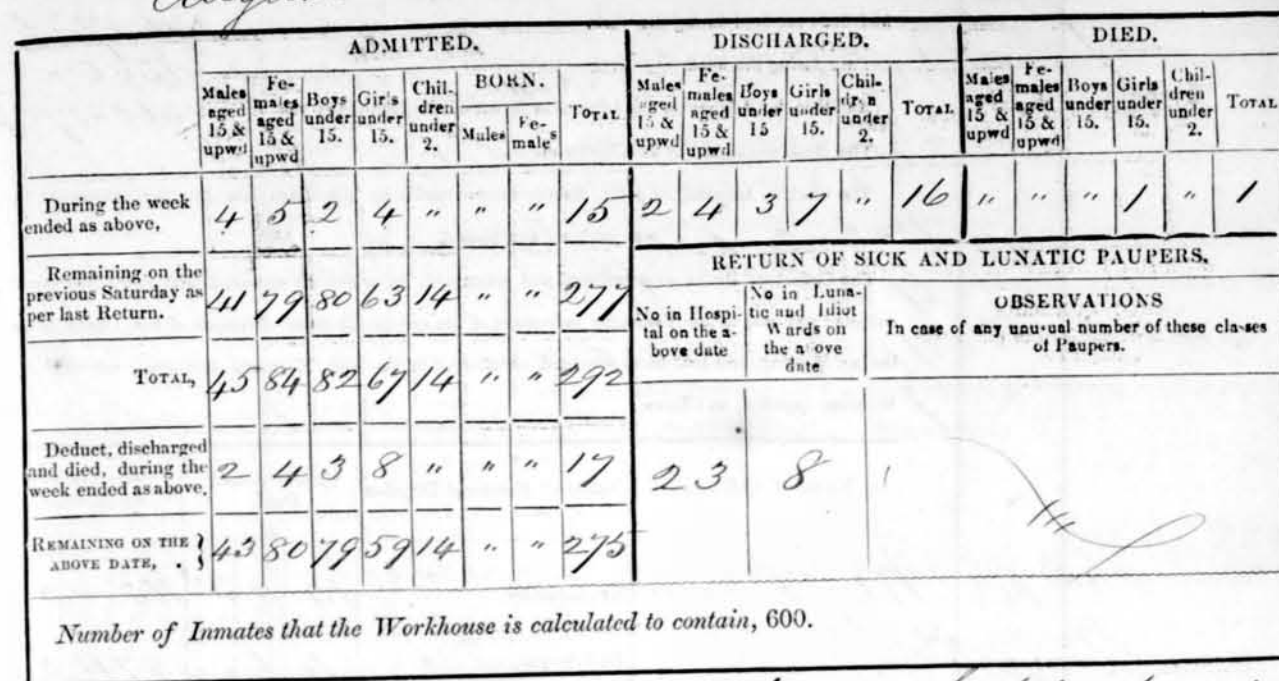 ADMITTED. DISCHARGED. DIED.
Males aged 15 & upwd
Females aged 15 & upwd
Boys under 15.
Girls under 15.
Children under 2.
BORN.
Males
Females
TOTAL
Males aged 15 & upwd
Females aged 15 & upwd
Boys under 15
Girls under 15.
Children under 2.
TOTAL
Males aged 15 & upwd
Females aged 15 & upwd
Boys under 15.
Girls under 15.
Children under 2.
TOTAL
During the week ended as above, 4 5 2 4 " " " 15 2 4 3 7 " 16 " " " 1 " 1
Remaining on the previous Saturday as per last Return. 41 79 80 63 14 " " 277
TOTAL, 45 84 82 67 14 " " 292
Deduct, discharged and died, during the week ended as above, 2 4 3 8 " " " 17
REMAINING ON THE ABOVE DATE, . } 43 80 79 59 14 " " 275
RETURN OF SICK AND LUNATIC PAUPERS.
No in Hospital on the above date
No in Lunatic and Idiot Wards on the above date
OBSERVATIONS
In case of any unusual number of these classes of Paupers.
23 8
Number of Inmates that the Workhouse is calculated to contain, 600.